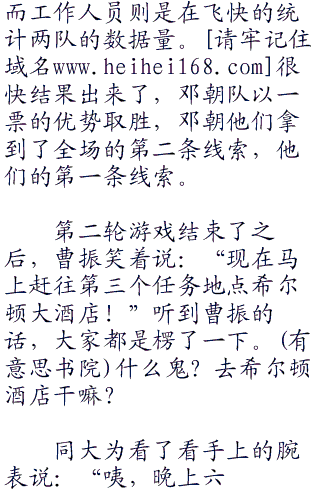 而工作人员则是在飞快的统
计两队的数据量。[请牢记住
域名www.heihei168.com]很
快结果出来了，邓朝队以一
票的优势取胜，邓朝他们拿
到了全场的第二条线索，他
们的第一条线索。
第二轮游戏结束了之
后，曹振笑着说：“现在马
上赶往第三个任务地点希尔
顿大酒店！”听到曹振的
话，大家都是楞了一下。(有
意思书院)什么鬼？去希尔顿
酒店干嘛？
同大为看了看手上的腕
表说：“咦，晚上六